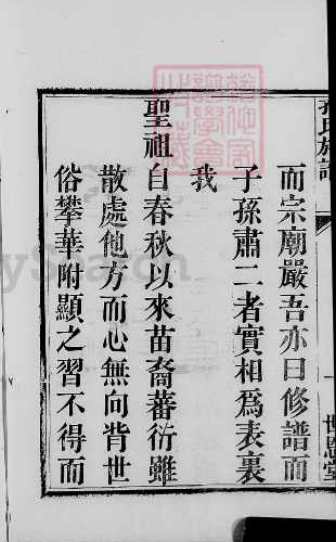 氏族譜
而宗廟嚴吾亦曰修譜而
子孫肅二者實相為表裏
我
聖祖自春秋以來苗裔蕃衍雖
散處他方而心無向背世
俗攀華附顯之習不得而